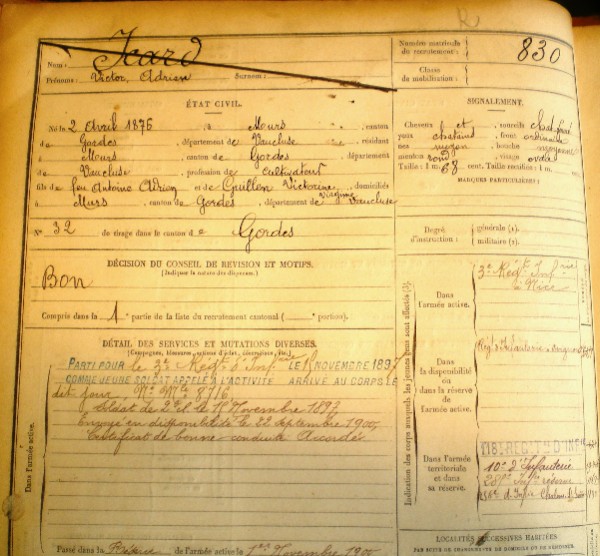 R
Icard
Nom :
Prénoms : Victor, Adrien Surnom :
Numéro matricule du recrutement : 830
Classe de mobilisation :
ÉTAT CIVIL.
Né le 2 Avril 1876, à Murs, canton
de Gordes, département de Vaucluse, résidant
à Murs, canton de Gordes, département
de Vaucluse, profession de cultivateur
fils de feu Antoine Adrien et de Victorine Virginie, domiciliés
à Murs, canton de Gordes, département de Vaucluse
SIGNALEMENT.
Cheveux et sourcils
yeux chatains, front ordinaire
nez moyen, bouche moyenne
menton rond, visage ovale
Taille : 1 m. 63 cent. Taille rectifiée : 1 m.
MARQUES PARTICULIÈRES :
No 32 de tirage dans le canton de Gordes
Degré d'instruction : générale (1).
militaire (2).
DÉCISION DU CONSEIL DE REVISION ET MOTIFS.
(Indiquer la nature des dispenses.)
Bon
Compris dans la 1e partie de la liste du recrutement cantonal ( portion).
DÉTAIL DES SERVICES ET MUTATIONS DIVERSES.
(Campagnes, blessures, actions d'éclat, décorations, etc.)
PARTI POUR le 3e Régt d'Infrie LE NOVEMBRE 1897
COMME JEUNE SOLDAT APPELÉ À L'ACTIVITÉ ARRIVÉ AU CORPS LE
dit jour, No Mle 8716
Soldat de 2e cl. le Novembre 1897
Envoyé en disponibilité le 22 Septembre 1900
Certificat de bonne conduite Accordé
Dans l'armée active.
Passé dans la Réserve de l'armée active le 1er Novembre 1900
Indication des corps auxquels les jeunes gens sont affectés
Dans l'armée active.
3e Régt Infrie
à Nice
Dans la disponibilité ou dans la réserve de l'armée active.
Régt d'Infanterie
Dans l'armée territoriale et dans sa réserve.
118e REGT D'INF
10e d'Infanterie
LOCALITÉS SUCCESSIVES HABITÉES
PAR SUITE DE CHANGEMENTS DE DOMICILE OU DE RÉSIDENCE.